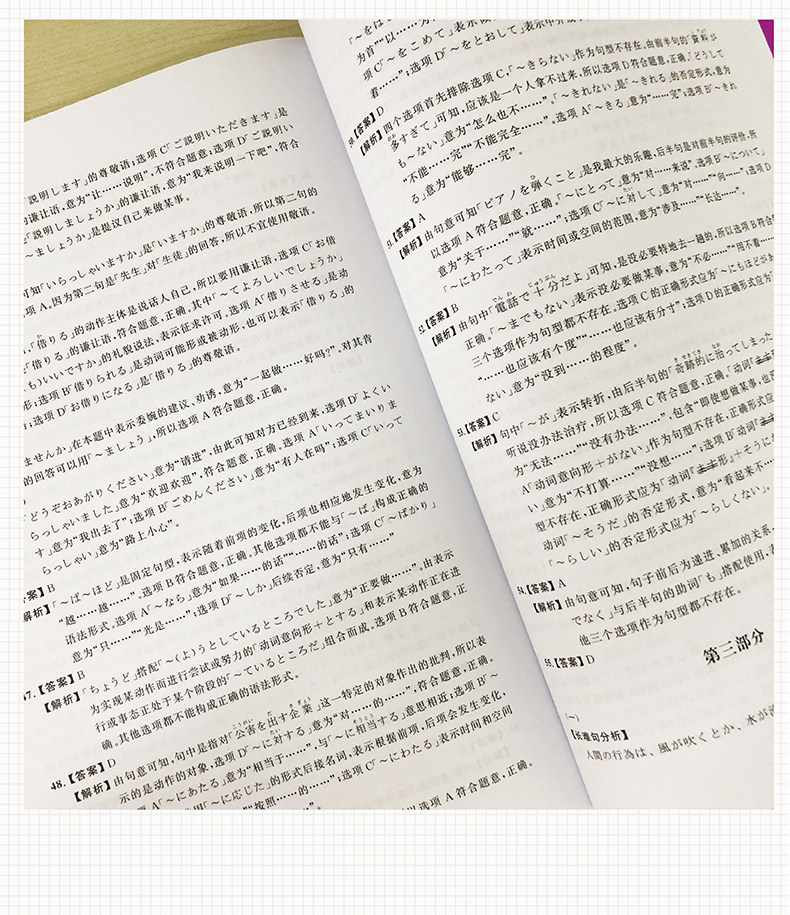 「説明します」的尊敬语;选项 C「ご説明いただきます」是
的谦让语,意为“让……说明”,不符合题意;选项 D「ご説明い
「説明しましょうか」的谦让语,意为“我来说明一下吧”,符合
～ましょうか」是提议自己来做某事。
可知「いらっしゃいますか」是「いますか」的尊敬语,所以第二句的
项 A。因为第二句是「先生」对「生徒」的回答,所以不宜使用敬语。
「借りる」的动作主体是说话人自己,所以要用谦让语,选项 C「お借
「借りる」的谦让语,符合题意,正确。其中「～てよろしいでしょうか」
も)いいですか」的礼貌说法,表示征求许可。选项 A「借りさせる」是动
形;选项 B「借りられる」是动词可能形或被动形,也可以表示「借りる」的
;选项 D「お借りになる」是「借りる」的尊敬语。
ませんか」在本题中表示委婉的建议、劝诱,意为“一起做……好吗?”。对其肯
的回答可以用「～ましょう」,所以选项 A 符合题意,正确。
どうぞおあがりください」意为“请进”,由此可知对方已经到来,选项 D「よくい
らっしゃいました」意为“欢迎欢迎”,符合题意,正确。选项 A「いってまいりま
す」意为“我出去了”;选项 B「ごめんください」意为“有人在吗”;选项 C「いって
らっしゃい」意为“路上小心”。
案】B
解析】「～ば～ほど」是固定句型,表示随着前项的变化,后项也相应地发生变化,意为
“越……越……”。选项 B 符合题意,正确。其他选项都不能与「～ば」构成正确的
语法形式。选项 A「～なら」意为“如果……的话”“……的话”;选项 C「～ばかり」
意为“只……”“光是……”;选项 D「～しか」后续否定,意为“只有……”
47.【答案】B
【解析】「ちょうど」搭配「～(よ)うとしているところでした」意为“正要做……”。由表示
为实现某动作而进行尝试或努力的「动词意向形+とする」和表示某动作正在进
行或事态正处于某个阶段的「～ているところだ」组合而成。选项 B 符合题意,正
确。其他选项都不能构成正确的语法形式。
48.【答案】D
【解析】由句意可知,句中是指对「公害を出す企業」这一特定的对象作出的批判,所以表
示的是动作的对象,选项 D「～に対する」意为“对……的……”,符合题意,正确。
项 A「～にあたる」意为“相当于……”,与「～に相当する」意思相近;选项 B「～
「～に応じた」的形式后接名词,表示根据前项,后项会发生变化,
“按照……的……”;选项 C「～にわたる」表示时间和空间
以选项 A 符合题意,正确。
为首”“以……为
项 C「～をこめて」表示
着……”;选项 D「～をとおして」表示中介
50.【答案】D
【解析】四个选项首先排除选项 C,「～きらない」作为句型不存在。由前半句的「資料が
多すぎて」可知,应该是一个人拿不过来,所以选项 D 符合题意,正确。「どうして
も～ない」意为“怎么也不……”。「～きれない」是「～きれる」的否定形式,意为
“不能……完”“不能完全……”。选项 A「～きる」意为“……完”;选项 B「～きれ
る」意为“能够……完”。
51.【答案】A
【解析】由句意可知「ピアノを弾くこと」是我最大的乐趣,后半句是对前半句的评价,所
以选项 A 符合题意,正确。「～にとって」意为“对……来说”。选项 B「～について」
意为“关于……”“就……”;选项 C「～に対して」意为“对……”“向……”;选项 D
「～にわたって」表示时间或空间的范围,意为“涉及……”“长达……”。
52.【答案】B
【解析】由句中「電話で十分だよ」可知,是没必要特地去一趟的,所以选项 B 符合
正确。「～までもない」表示没必要做某事,意为“不必……”“用不着……
三个选项作为句型都不存在。选项 C 的正确形式应为「～にもほどが
“……也应该有个度”“……也应该有分寸”;选项 D 的正确形式应为
ない」意为“没到……的程度”。
53.【答案】C
【解析】句中「～が」表示转折,由后半句的「奇跡的に治ってしまった
听说没办法治疗,所以选项 C 符合题意,正确。「动词
为“无法……”“没有办法……”,包含“即使想做某事,也
A「动词意向形+がない」作为句型不存在,正确形式应
い」意为“不打算……”“没想……”;选项 B「动词
型不存在,正确形式应为「动词「ます形」+そうに
动词「～そうだ」的否定形式,意为“看起来不…
「～らしい」的否定形式应为「～らしくない」。
54.【答案】A
【解析】由句意可知,句子前后为递进、累加的关系,
でなく」与后半句的助词「も」搭配使用,
他三个选项作为句型都不存在。
55.【答案】D
第三部分
(一)
【长难句分析】
人間の行為は、風が吹くとか、水が